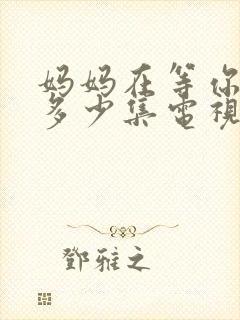 妈妈在等你
多少集電視
鄧雅之